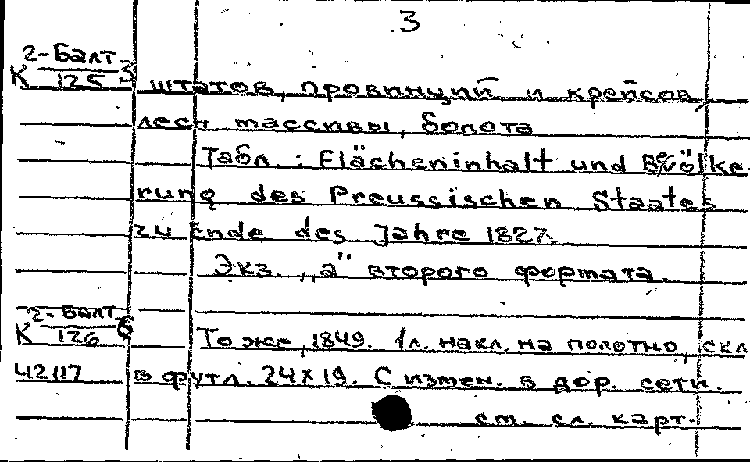 3
2-Балт
К 125 3 штатов, провинций и крейсов,
лесн массивы, болота
Табл.: Flächeninhalt und Bevölke-
rung des Preussischen Staates
zu Ende des Jahre 1827.
Экз. „а" второго формата.
2-Балт
К 126 6 То же, 1849. 1 л. накл. на полотно, скл
42117 в футл. 24х19. С измен. в дор. сети.
см. сл. карт.